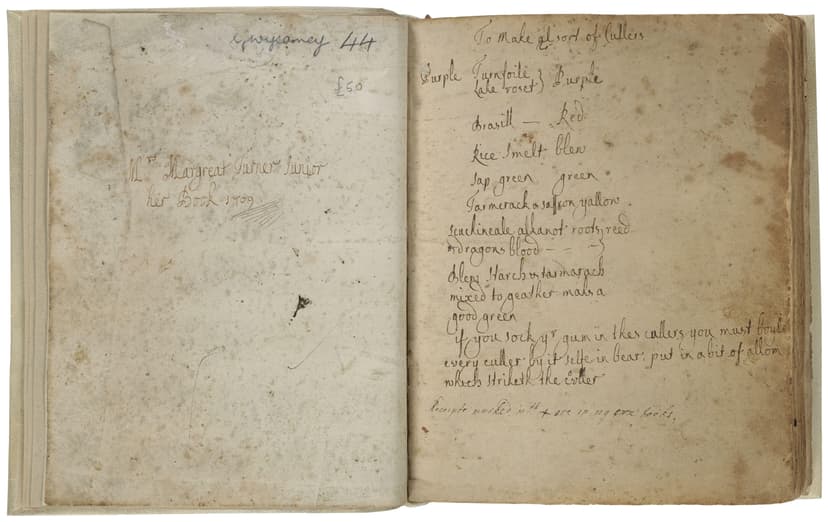 44
£50
Mrs Margreat Turner Junior
her Book 1709
To Make all sort of Cullers
Purple Turnsoile } Purple
Lake roset
Brasill — Red
Rice Smelt blew
Sap green green
Tarmerack & saffron yallow
scuchineale alkanot roots } reed
or dragons blood — —
Blew starch & tarmarack
mixed to geather maks a
good green
if you sock yr gum in thes cullers you must boyle
every culler by it selfe in bear: put in a bit of allom
which striketh the culler
Receipts marked with + are in my own books.